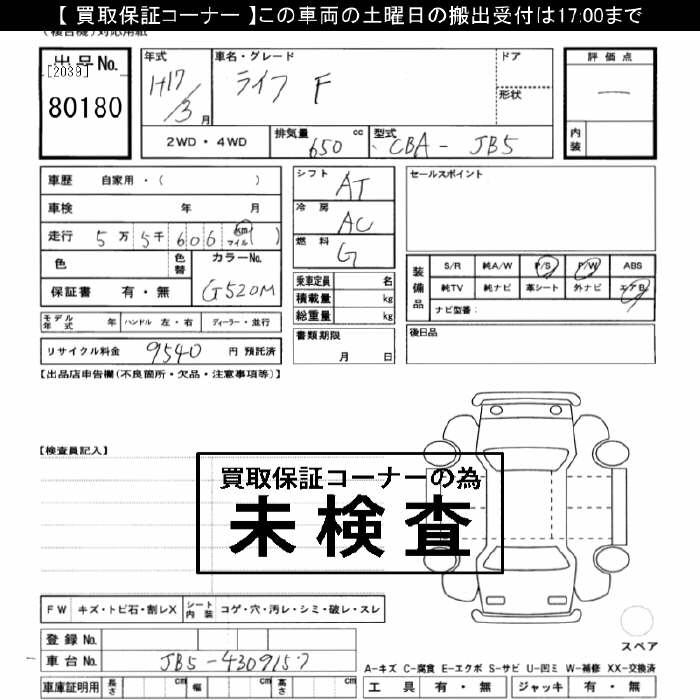 【 買取保証コーナー 】この車両の土曜日の搬出受付は17:00まで
(複合機)対応用紙
出品No.
[2039]
80180
年式
H17/3月
車名・グレード
ライフ F
ドア
形状
評価点
—
内装
2WD・4WD
排気量 650 cc
型式 CBA - JB5
車歴 自家用・( )
車検 年 月
走行 5万5千606 km マイル ( )
色
色替
カラーNo.
G520M
保証書 有・無
モデル年式 年 ハンドル 左・右 ディーラー・並行
リサイクル料金 9540 円 預託済
シフト AT
冷房 AC
燃料 G
乗車定員 名
積載量 kg
総重量 kg
書類期限
月 日
セールスポイント
装備品
S/R 純A/W P/S P/W ABS
純TV 純ナビ 革シート 外ナビ エアB
ナビ型番:
後日品
【出品店申告欄(不良個所・欠品・注意事項等)】
【検査員記入】
買取保証コーナーの為
未検査
FW キズ・トビ石・割レX シート内装 コゲ・穴・汚レ・シミ・破レ・スレ
スペア
登録No.
車台No. JB5-4309157
A-キズ C-腐食 E-エクボ S-サビ U-凹ミ W-補修 XX-交換済
車庫証明用 長さ cm 幅 cm 高さ cm
工具 有・無 ジャッキ 有・無